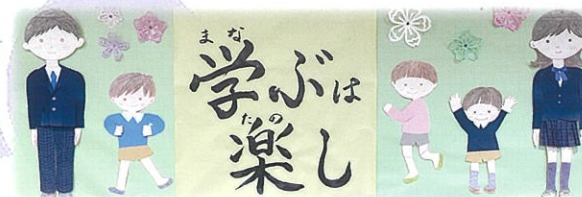 まな
学ぶは
たの
楽し